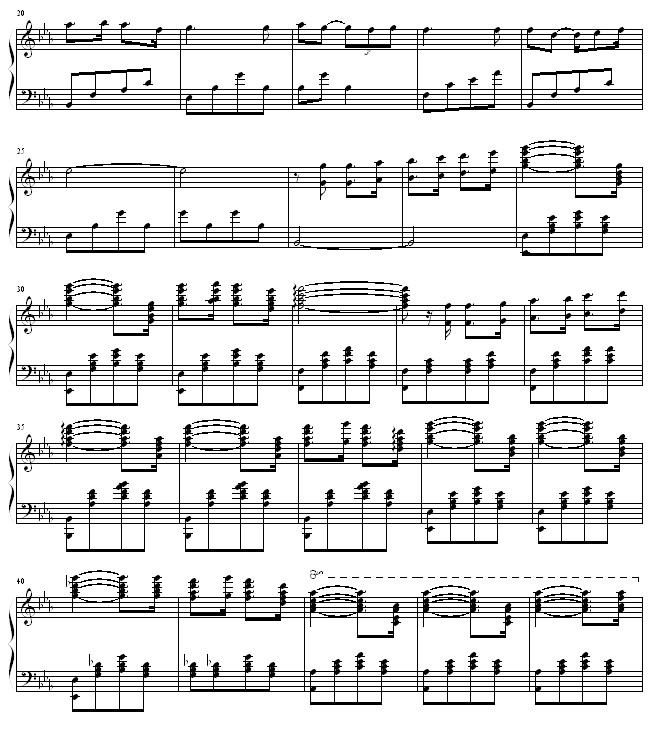 20
25
30
35
40
8va